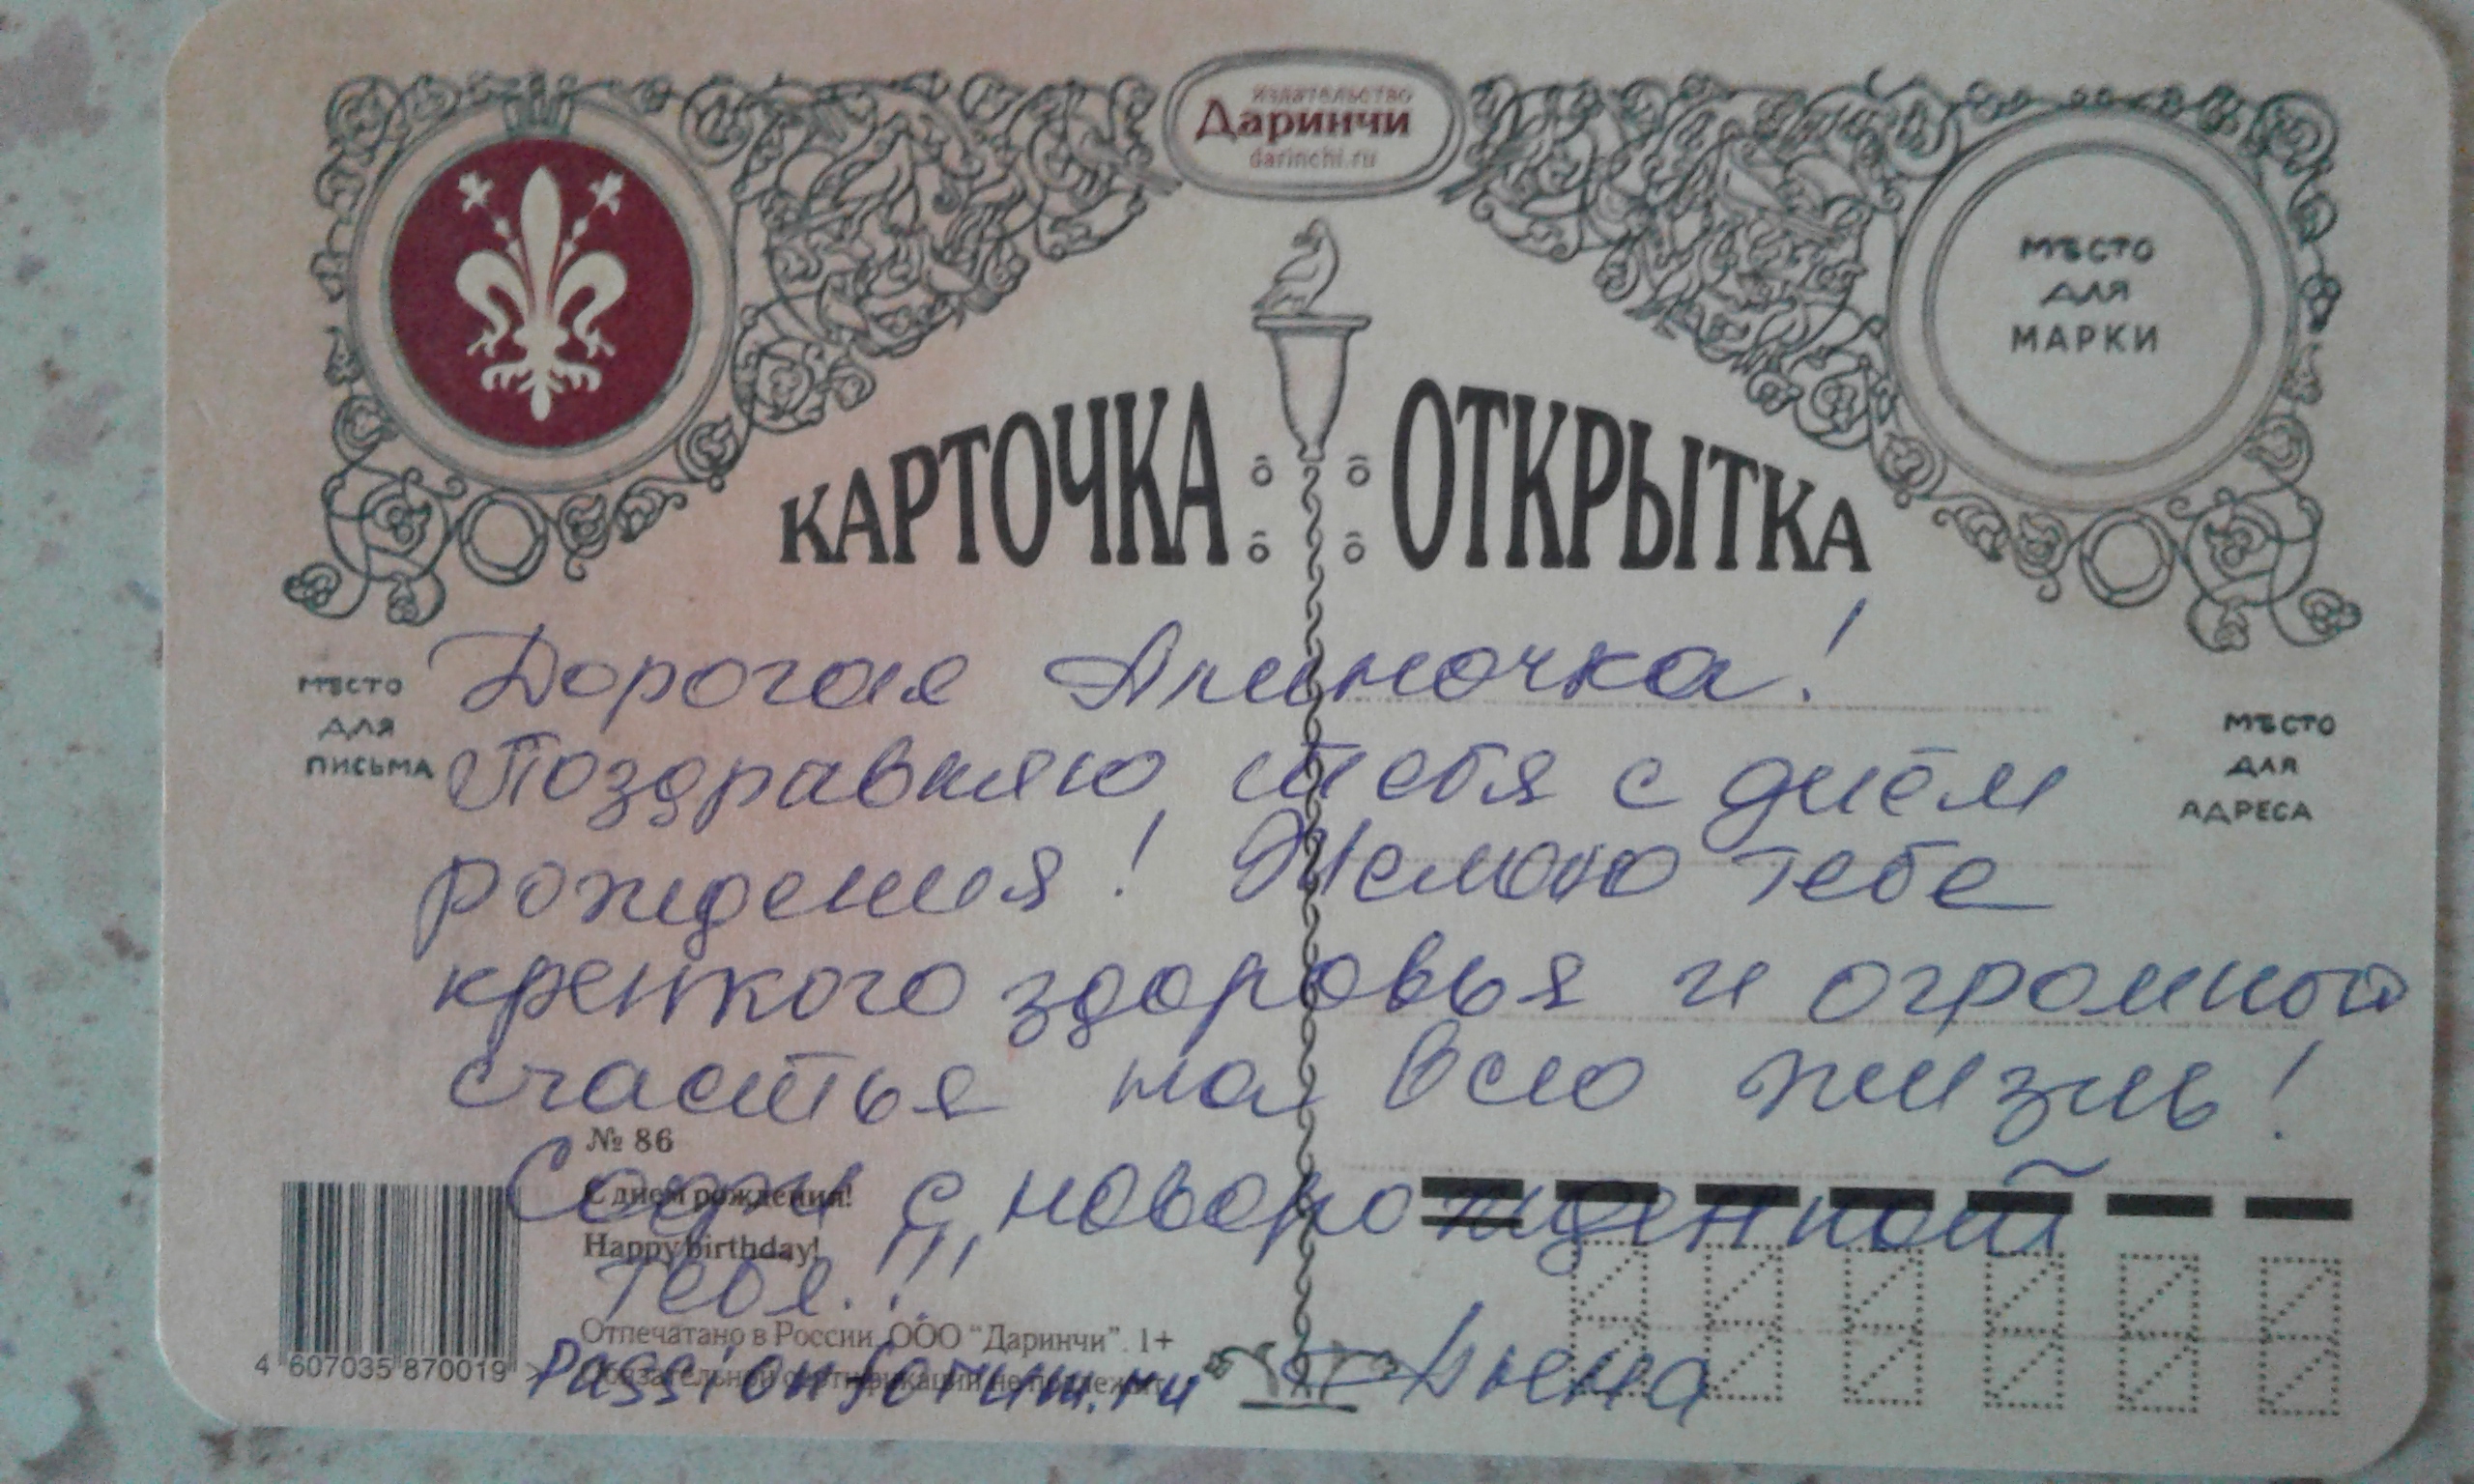 издательство
Даринчи
darinchi.ru
МѢСТО
ДЛЯ
МАРКИ
КАРТОЧКА ОТКРЫТКА
МѢСТО
ДЛЯ
ПИСЬМА
Дорогая Алиночка!
Поздравляю тебя с днём
рождения! Желаю тебе
крепкого здоровья и огромного
счастья на всю жизнь!
с новорожденной
тебя!!!
Passionforum.ru Алена
МѢСТО
ДЛЯ
АДРЕСА
№ 86
С днем рождения!
Happy birthday!
Отпечатано в России. ООО “Даринчи”. 1+
Обязательной сертификации не подлежит.
4 607035 870019 >